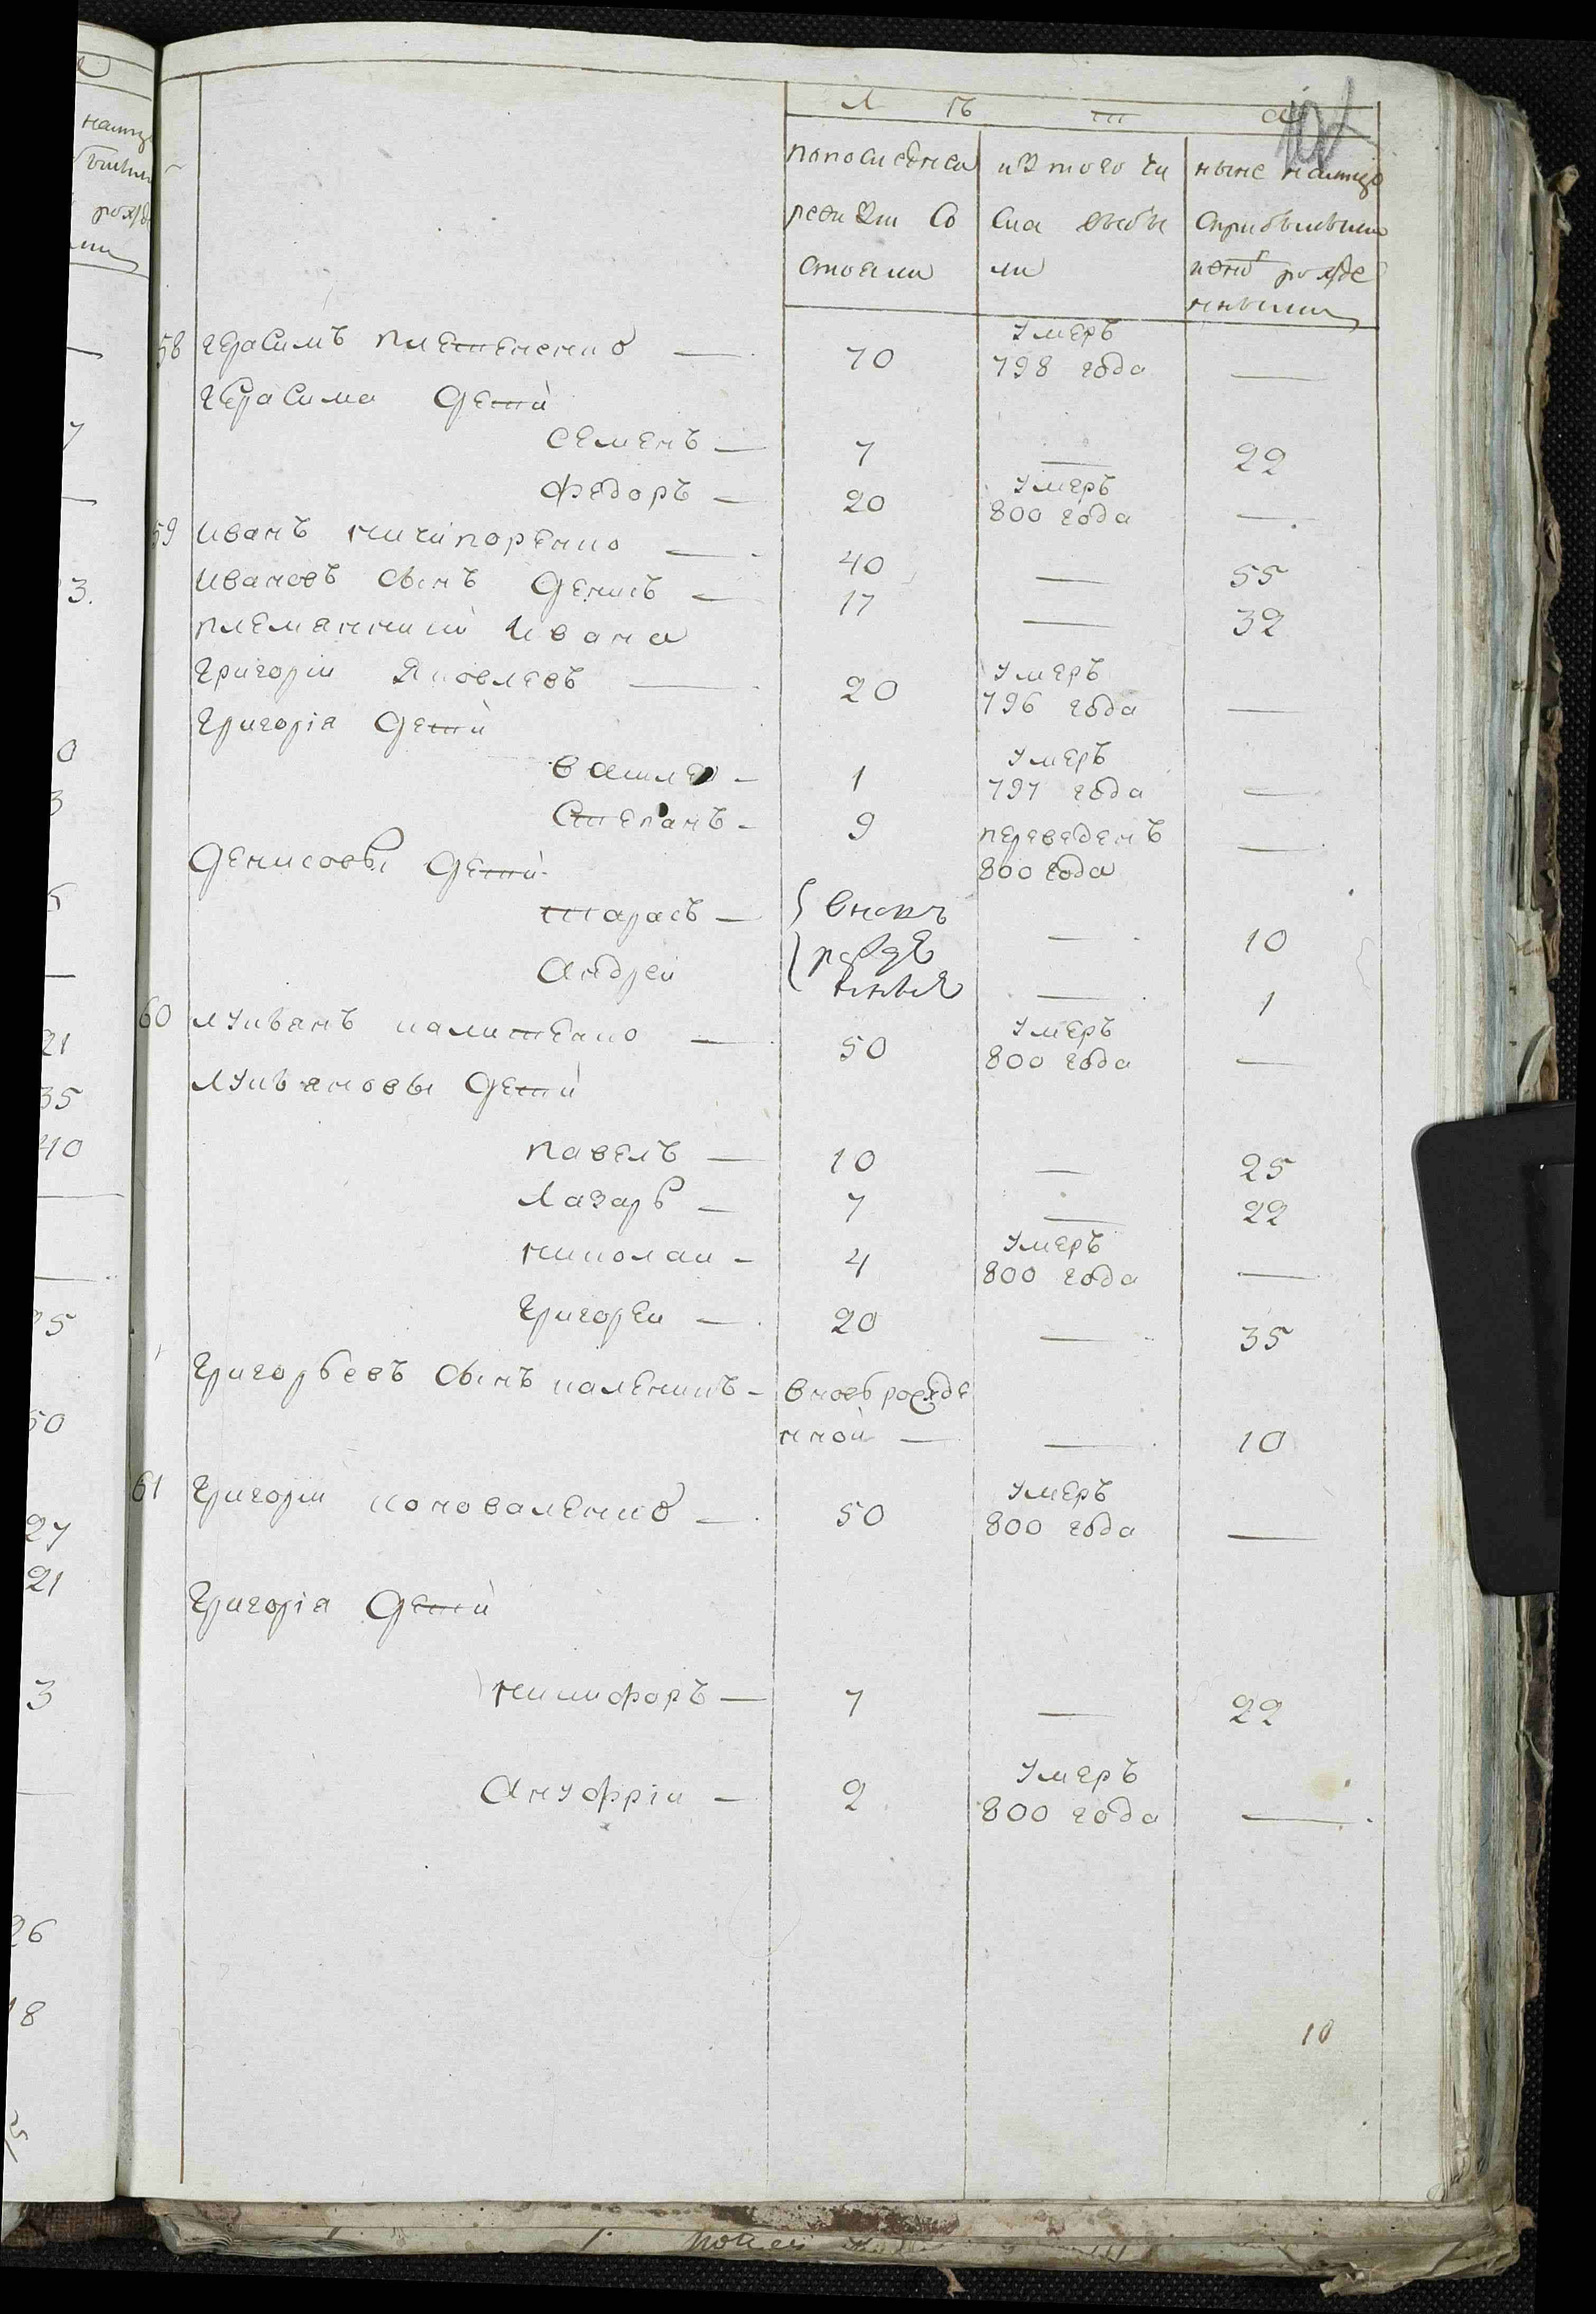 Л Ѣ Т А
попоследней
ревизiи со
стояли
изтого чи
сла выбы
ли
ныне налицо
сприбылыми
и рожде
нными
58 Герасимъ Плетененко — 70 Умеръ 798 года —
Герасима Дети
Семенъ — 7 — 22
Федоръ — 20 Умеръ 800 года —
59 Иванъ Ничипоренко — 40 — 55
Ивановъ сынъ Денисъ — 17 — 32
племянники Ивана
Григорiи Яковлевъ — 20 Умеръ 796 года —
Григорiя Дети
Василеи — 1 Умеръ 797 года —
Степанъ — 9 переведенъ 800 года —
Денисовы Дети
Тарасъ — вновь — 10
Андреи рожде нныя — 1
60 Лукъянъ Калитенко — 50 Умеръ 800 года —
Лукьяновы Дети
Павелъ — 10 — 25
Лазарь — 7 — 22
Николаи — 4 Умеръ 800 года —
Григореи — 20 — 35
Григорьевъ сынъ Каленикъ — вновь рожде
нной — — 10
61 Григорiи Коноваленко — 50 Умеръ 800 года —
Григорiя Дети
Никифоръ — 7 — 22
Ануфрiи — 2 Умеръ 800 года —
10